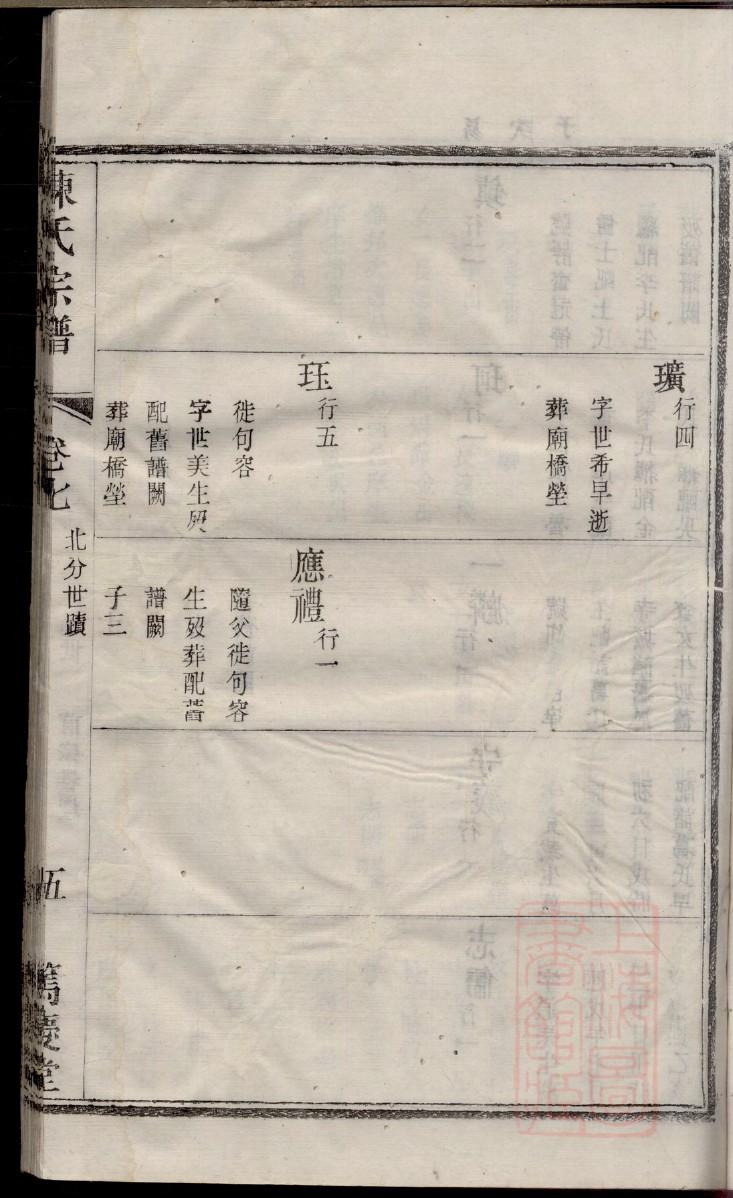 瓚 行四
字世希早逝
葬廟橋塋
珏 行五
徙句容
字世美生歿
配舊譜闕
葬廟橋塋
應禮 行一
隨父徙句容
生歿葬配舊
譜闕
子三
陳氏宗譜
卷七
北分世蹟
五
篤慶堂